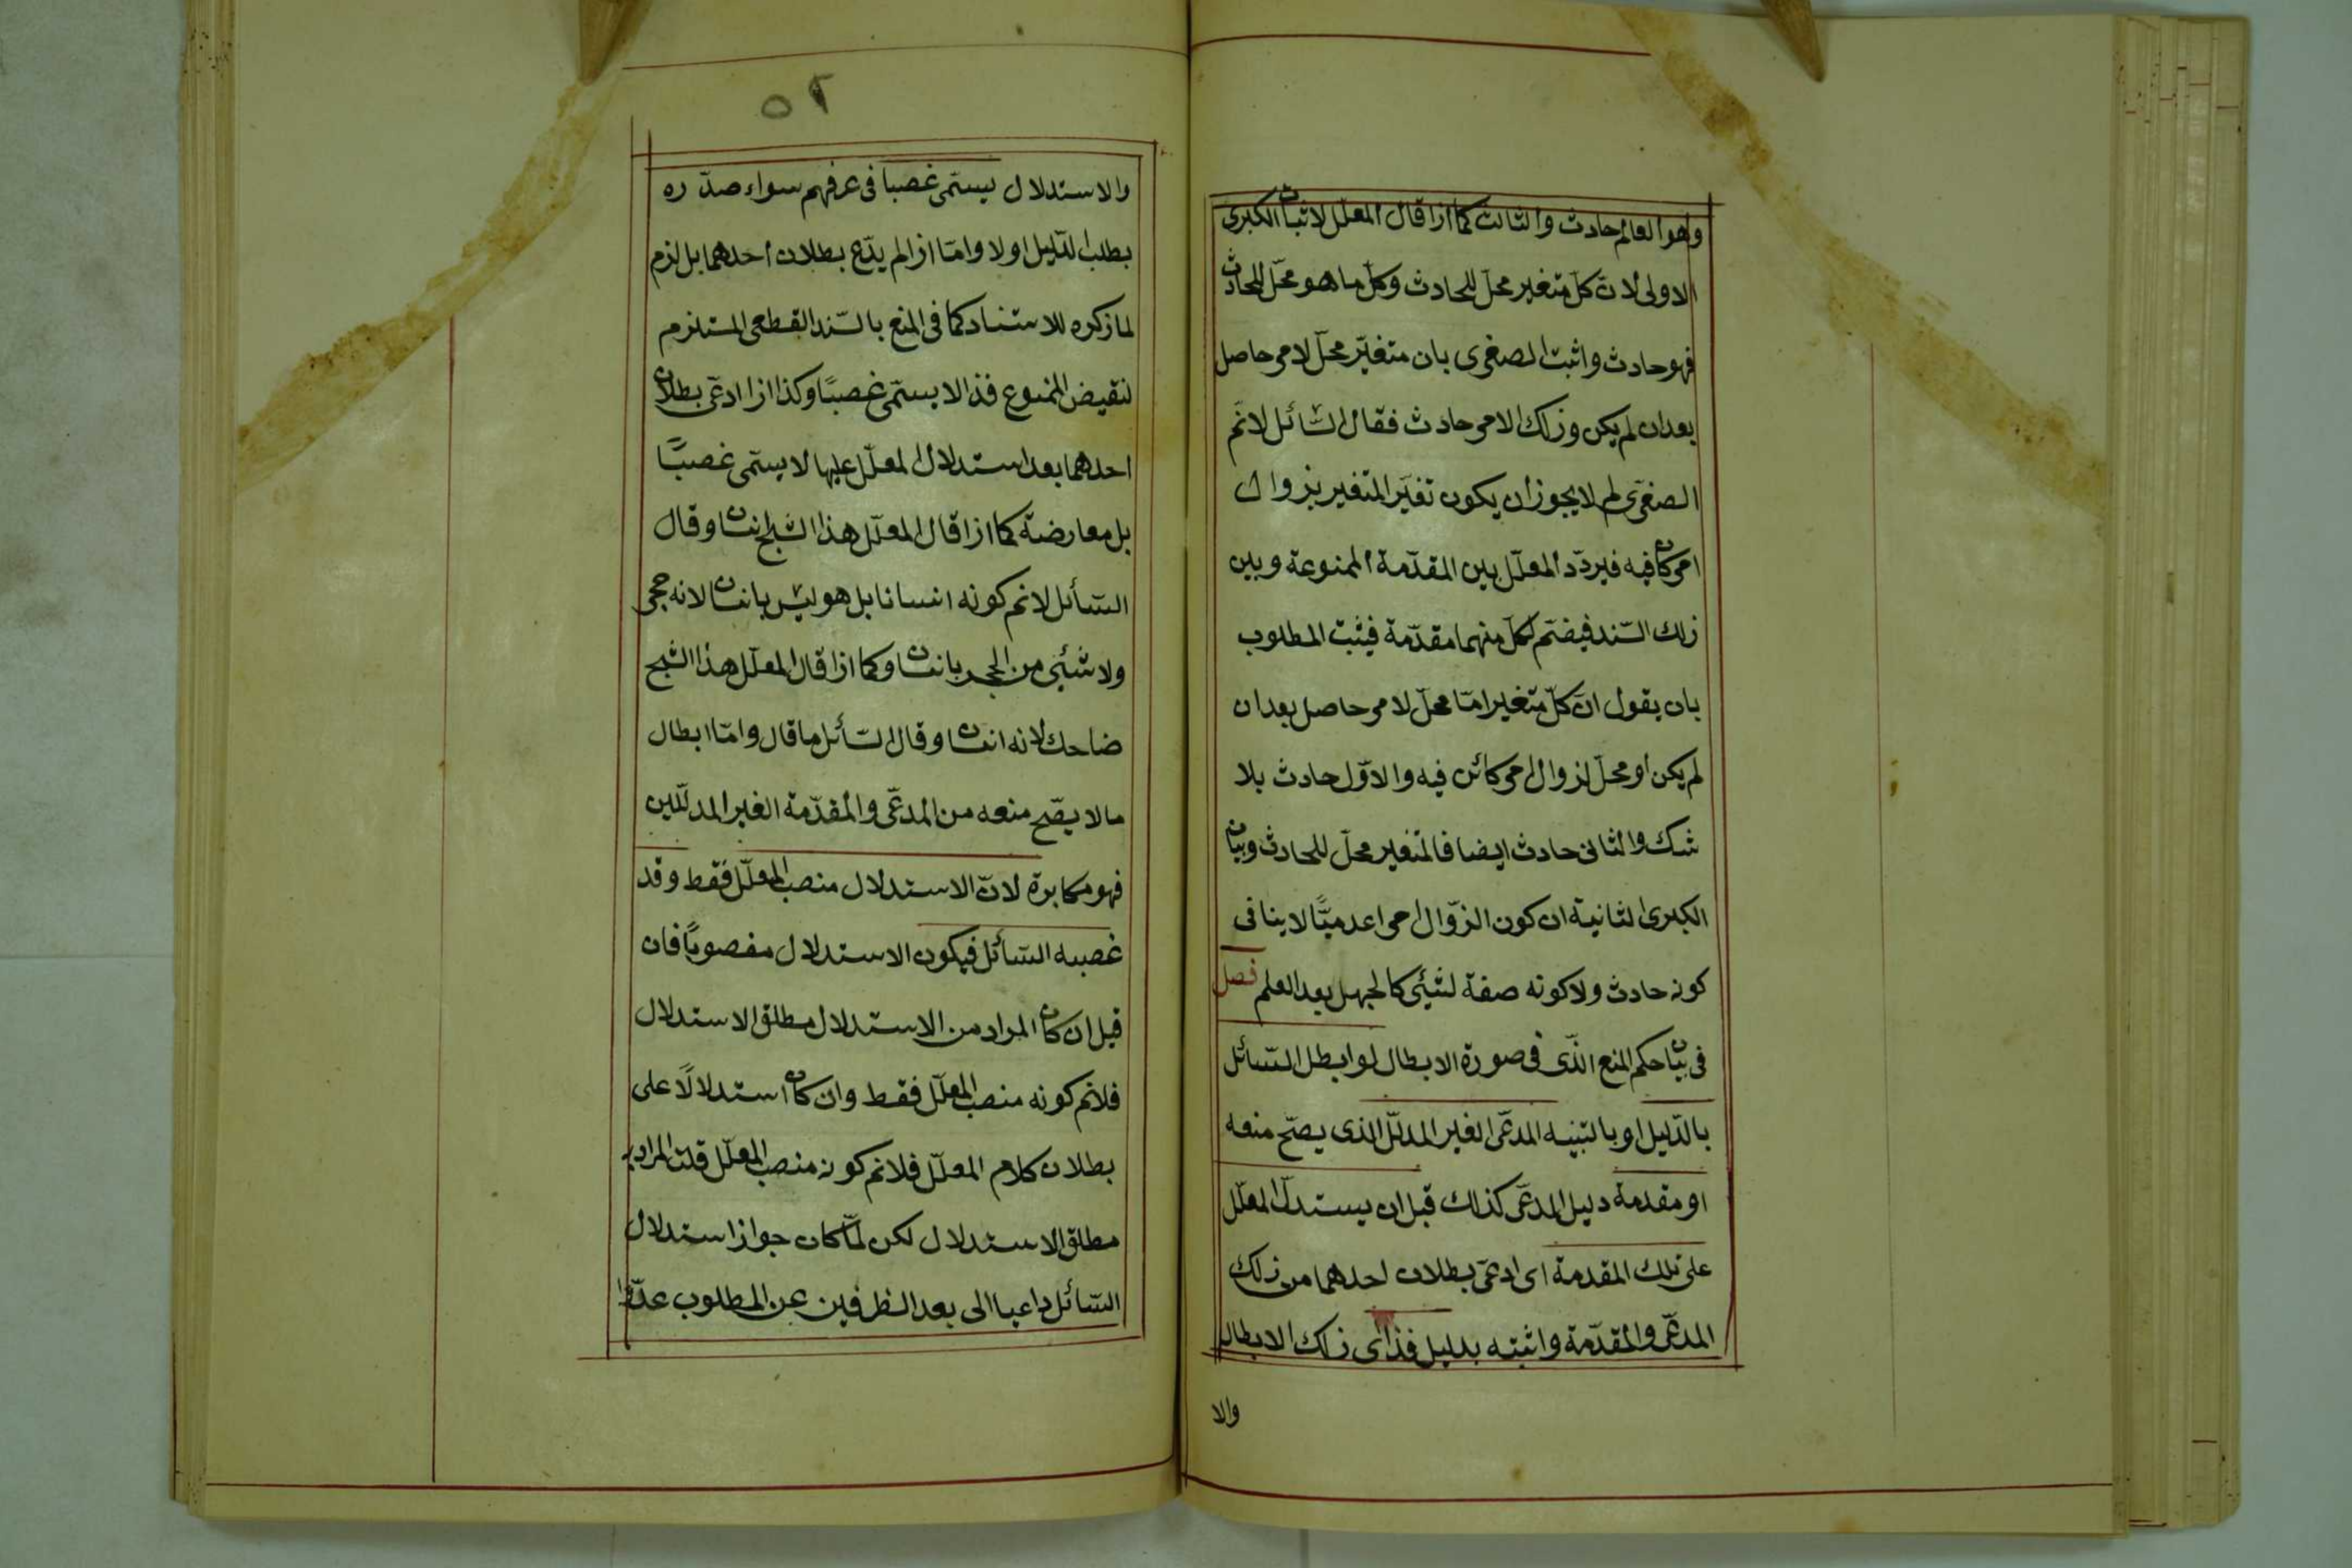 وهو العالم حادث والثالث كما اذا قال المعلل لاثبات الكبرى
الاولى لان كلّ متغير محلّ للحادث وكلّ ما هو محلّ للحادث
فهو حادث واثبت الصغرى بان متغيّر محلّ لامر حاصل
بعد ان لم يكن وذلك الامر حادث فقال السّائل لانم
الصغرى لم لا يجوز ان يكون تغيّر المتغير بزوال
امر كان فيه فيردّد المعلّل بين المقدّمة الممنوعة وبين
ذلك السّند فيضمّ لكلّ منهما مقدّمة فيثبت المطلوب
بان يقول انّ كلّ متغير امّا محلّ لامر حاصل بعد ان
لم يكن او محلّ لزوال امر كائن فيه والاوّل حادث بلا
شك والثانى حادث ايضا فالمتغير محلّ للحادث وبيان
الكبرى الثانية ان كون الزّوال امرا عدميّا لا ينافى
كونه حادث ولا كونه صفة لشئى كالجهل بعد العلم فصل
فى بيان حكم المنع الّذى فى صورة الابطال لو ابطل السّائل
بالدّليل او بالتنبيه المدعّى الغير المدلّل الذى يصحّ منعه
او مقدمة دليل المدعّى كذلك قبل ان يستدلّ المعلّل
على تلك المقدمة اى ادعّى بطلان احدهما من ذلك
المدعّى والمقدّمة واثبته بدليل فذا اى ذلك الابطال
والا
٥٢
والاستدلال يسمّى غصبا فى عرفهم سواء صدّره
بطلب الدّليل اولا وامّا اذا لم يدّع بطلان احدهما بل لزم
لما ذكره للاستناد كما فى المنع بالسّند القطعى المستلزم
لنقيض الممنوع فذا لا يسمّى غصبًا وكذا اذا ادعّى بطلان
احدهما بعد استدلال المعلّل عليها لا يسمّى غصبًا
بل معارضة كما اذا قال المعلّل هذا الشبح انسان وقال
السّائل لانم كونه انسانا بل هو ليس بانسان لانه حجر
ولا شئى من الحجر بانسان وكما اذا قال المعلّل هذا الشبح
ضاحك لانه انسان وقال السّائل ما قال وامّا ابطال
ما لا يصّح منعه من المدعّى والمقدّمة الغير المدلّلين
فهو مكابرة لانّ الاستدلال منصب المعلّل فقط وقد
غصبه السّائل فيكون الاستدلال مغصوبًا فان
قيل ان كان المراد من الاستدلال مطلق الاستدلال
فلانم كونه منصب المعلّل فقط وان كان استدلالًا على
بطلان كلام المعلّل فلانم كونه منصب المعلّل قلت المراد به
مطلق الاستدلال لكن لمّا كان جواز استدلال
السّائل داعيا الى بعد الطرفين عن المطلوب عدّوا